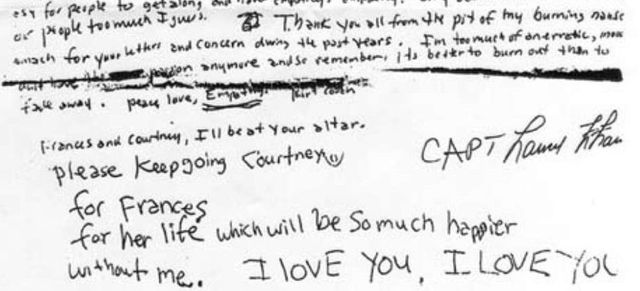 asy for people to get along and have empathy.
or people too much I guess. Thank you all from the pit of my burning nause
omach for your letters and concern during the past years. I'm too much of an erratic, moo
dont have the passion anymore and so remember, its better to burn out than to
fade away. peace love, Empathy. kurt cobain
Frances and Courtney, I'll be at your altar.
please keep going Courtney
CAPT
for Frances
for her life which will be so much happier
without me. I LOVE YOU, I LOVE YOU